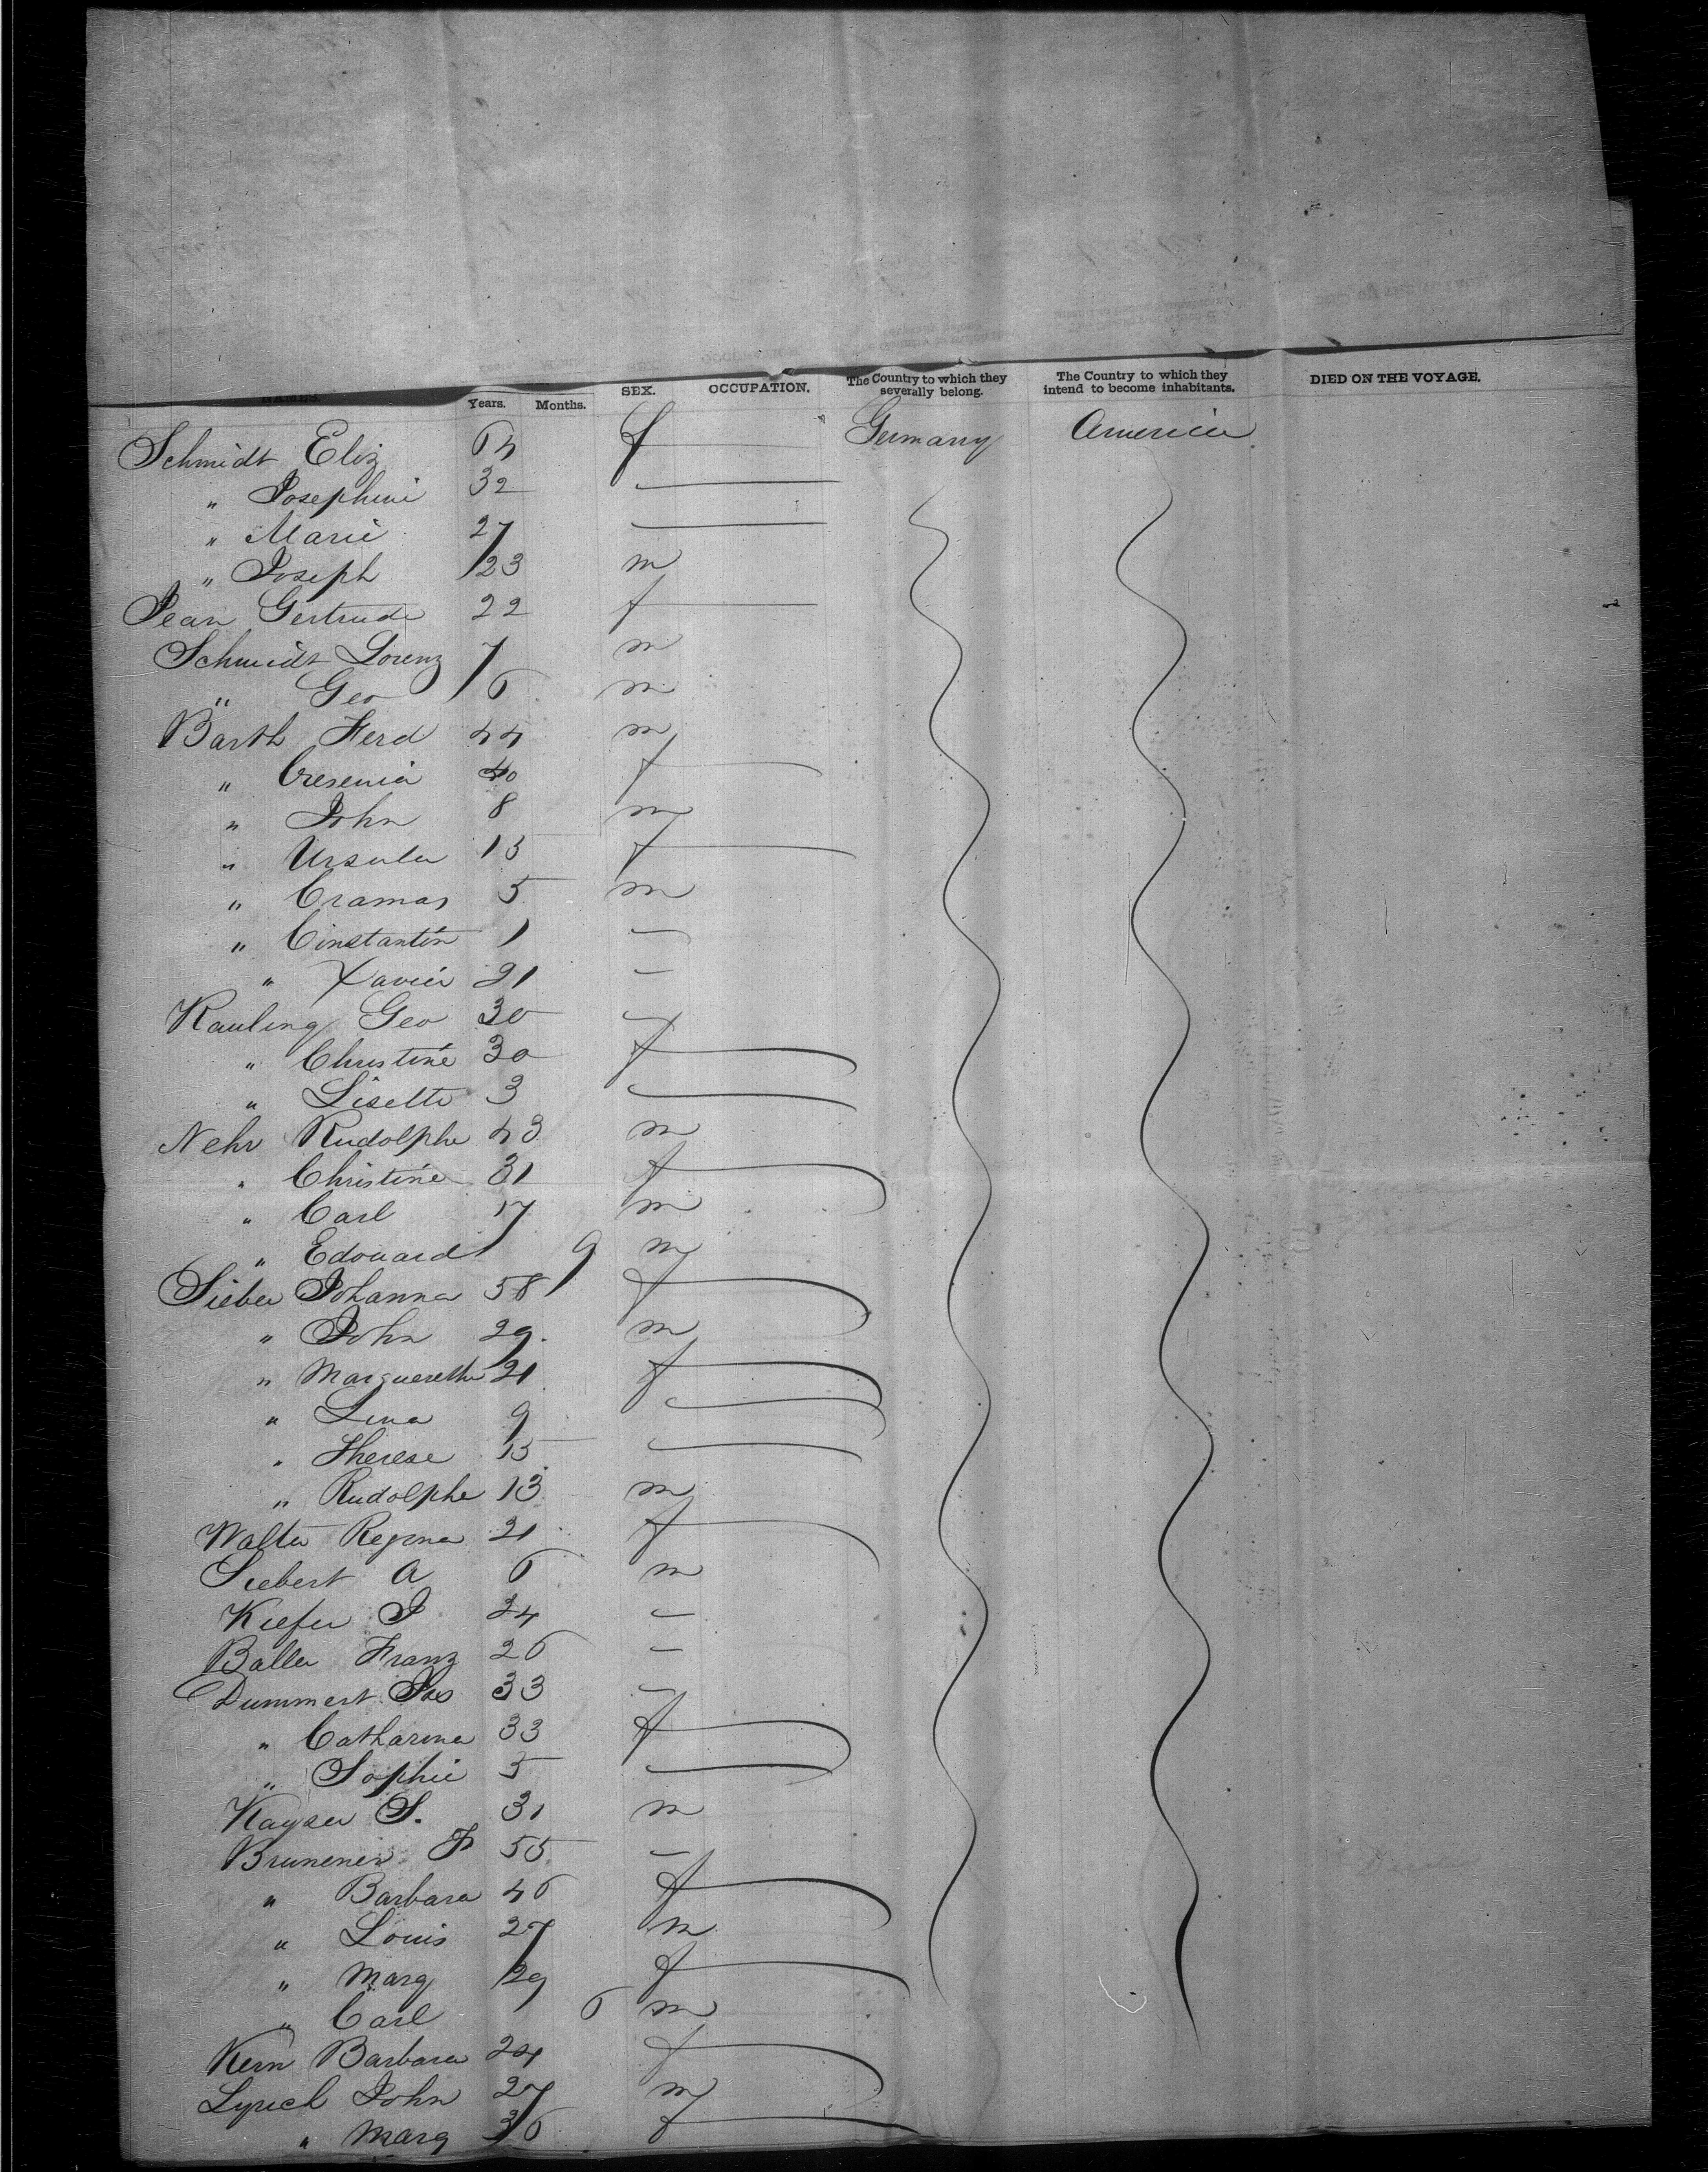 NAMES. Years. Months. SEX. OCCUPATION. The Country to which they severally belong. The Country to which they intend to become inhabitants. DIED ON THE VOYAGE.
Schmidt Eliz 64 f Germany America
" Josephine 32
" Marie 27
" Joseph 23 m
Jean Gertrude 22 f
Schmidt Lorenz 7 m
" Geo 6 m
Barth Ferd 44 m
" Cresenia 40 f
" John 8 m
" Ursula 13 f
" Cramas 5 m
" Cinstantin 1 —
" Xavier 21 —
Kauling Geo 30 —
" Christine 30 f
" Lisette 3
Nehr Rudolphe 43 m
" Christine 31 f
" Carl 17 m
" Edouard 9 m
Sieber Johanna 58 f
" John 29. m
" Marguerethe 21 f
" Lina 9
" Therese 15
" Rudolphe 13 m
Walter Regina 21 f
Siebert A 6 m
Kiefer J 24 —
Baller Franz 26 —
Dummert Jos 33 —
" Catharina 33 f
" Sophie 5
Kayser S. 31 m
Brunener F 55 —
" Barbara 46 f
" Louis 27 m
" Marg 29 f
" Carl 6 m
Kern Barbara 24 f
Lyrich John 27 m
" Marg 36 f